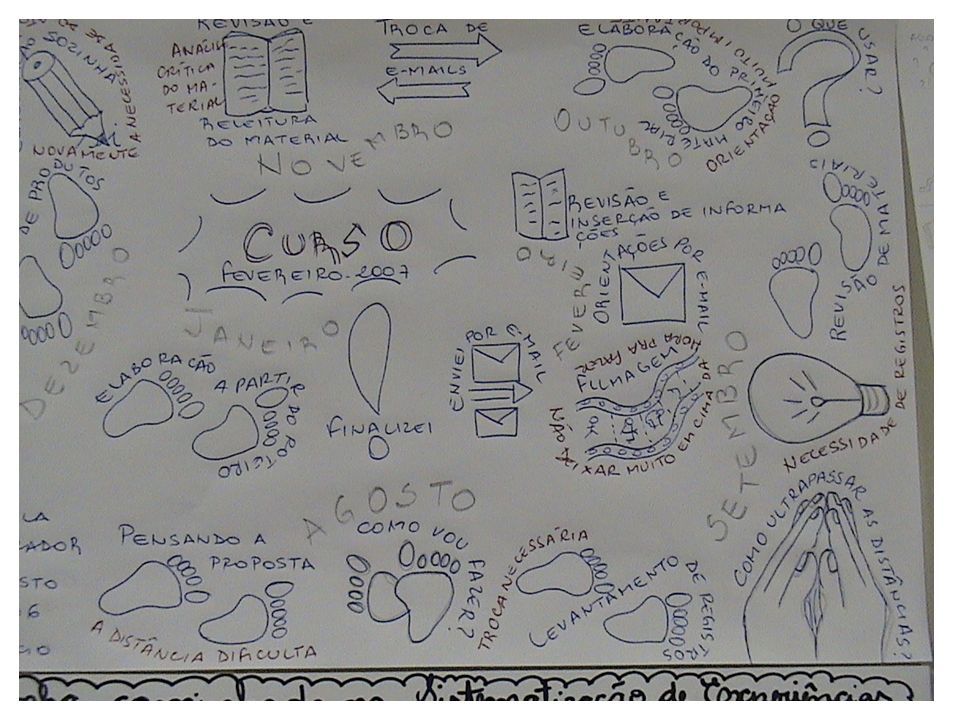 REVISÃO E
ANÁLISE
CRÍTICA
DO MA-
TERIAL
RELEITURA
DO MATERIAL
TROCA DE
E-MAILS
ELABORAÇÃO DO PRIMEIRO
MATERIAL
MUITO IMPORTANTE
ORIENTAÇÃO
O QUE USAR?
SOZINHA
NOVAMENTE A NECESSIDADE
NOVEMBRO
OUTUBRO
DE PRODUTOS
DEZEMBRO
CURSO
FEVEREIRO-2007
REVISÃO E
INSERÇÃO DE INFORMA
ÇÕES
ORIENTAÇÕES POR E-MAIL
REVISÃO DE MATERIAIS
JANEIRO
FEVEREIRO
ELABORAÇÃO
A PARTIR
DO ROTEIRO
FINALIZEI
ENVIEI POR E-MAIL
FILMAGEM
NÃO DEIXAR MUITO EM CIMA DA HORA PRA FAZER
SETEMBRO
NECESSIDADE DE REGISTROS
AGOSTO
LA
ADOR
STO
6
PENSANDO A
PROPOSTA
A DISTÂNCIA DIFICULTA
COMO VOU FAZER?
TROCA NECESSÁRIA
LEVANTAMENTO DE REGISTROS
COMO ULTRAPASSAR AS DISTÂNCIAS?
Sistematização de Experiências